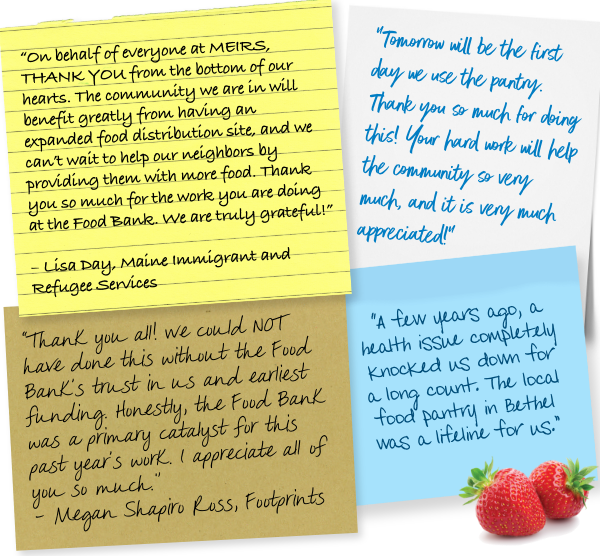 “On behalf of everyone at MEIRS,
THANK YOU from the bottom of our
hearts. The community we are in will
benefit greatly from having an
expanded food distribution site, and we
can’t wait to help our neighbors by
providing them with more food. Thank
you so much for the work you are doing
at the Food Bank. We are truly grateful!”
– Lisa Day, Maine Immigrant and
Refugee Services
“Tomorrow will be the first
day we use the pantry.
Thank you so much for doing
this! Your hard work will help
the community so very
much, and it is very much
appreciated!”
“Thank you all! We could NOT
have done this without the Food
Bank’s trust in us and earliest
funding. Honestly, the Food Bank
was a primary catalyst for this
past year’s work. I appreciate all of
you so much.”
– Megan Shapiro Ross, Footprints
“A few years ago, a
health issue completely
knocked us down for
a long count. The local
food pantry in Bethel
was a lifeline for us.”